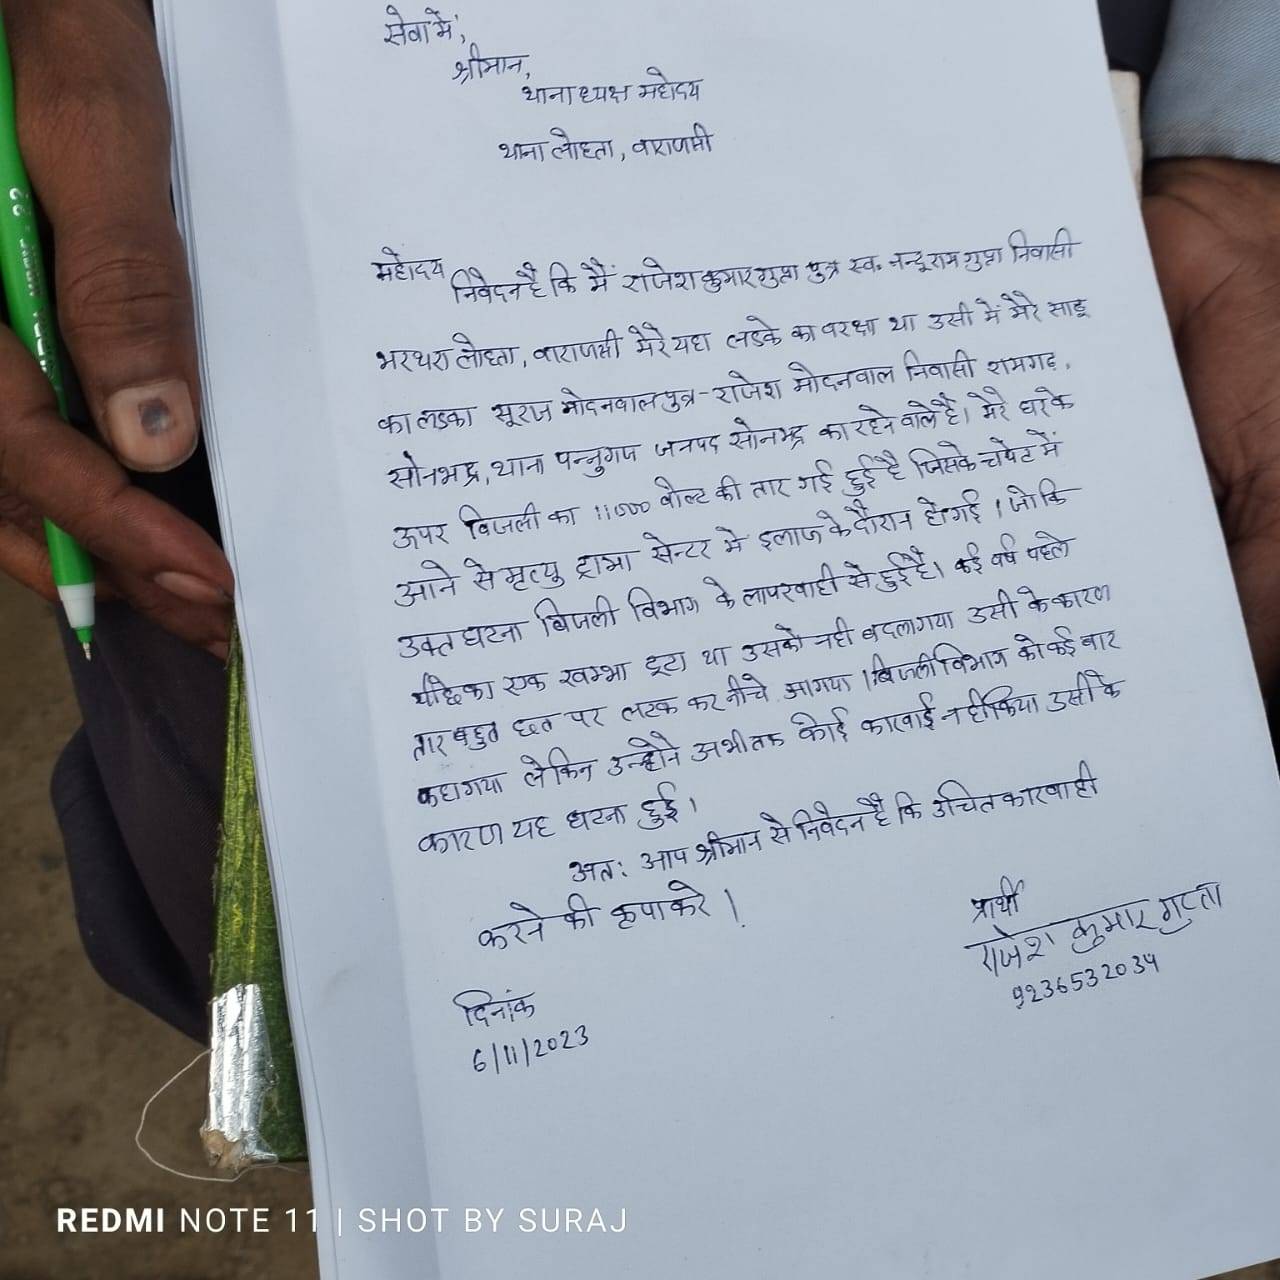 सेवा में,
श्रीमान,
थानाध्यक्ष महोदय
थाना लोहता, वाराणसी
महोदय
निवेदन है कि मैं राजेश कुमार गुप्ता पुत्र स्व. नन्दूराम गुप्ता निवासी
भरथरा लोहता, वाराणसी मेरे यहा लडके का वरक्षा था उसी में मेरे साढू
का लडका सूरज मोदनवाल पुत्र - राजेश मोदनवाल निवासी रामगढ़,
सोनभद्र, थाना पन्नुगंज जनपद सोनभद्र का रहने वाले है। मेरे घर के
ऊपर बिजली का 11000 वोल्ट की तार गई हुई है जिसके चपेट में
आने से मृत्यु ट्रामा सेन्टर मे इलाज के दौरान हो गई। जो कि
उक्त घटना बिजली विभाग के लापरवाही से हुई है। कई वर्ष पहले
का एक खम्भा टूटा था उसको नही बदला गया उसी के कारण
तार बहुत छत पर लटक कर नीचे आ गया। बिजली विभाग को कई बार
कहा गया लेकिन उन्होने अभी तक कोई कारवाई नही किया उसी के
कारण यह घटना हुई।
अतः आप श्रीमान से निवेदन है कि उचित कारवाही
करने की कृपा करे।
प्रार्थी
राजेश कुमार गुप्ता
9236532034
दिनांक
6/11/2023
REDMI NOTE 11 | SHOT BY SURAJ